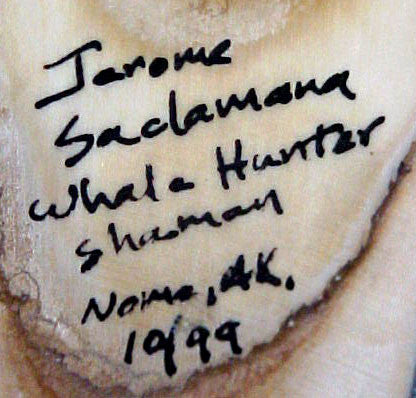 Jerome
Sadamana
Whale Hunter
Shaman
Nome, AK.
10/99